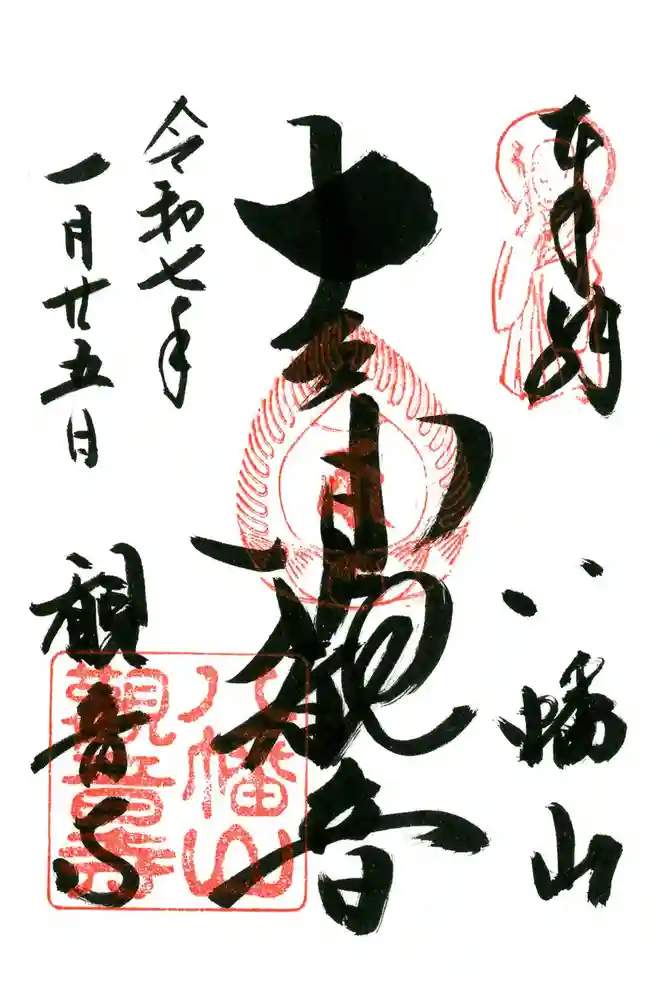 奉納
八幡山
観音
令和七年
一月廿五日
観音寺
八幡山
觀音寺